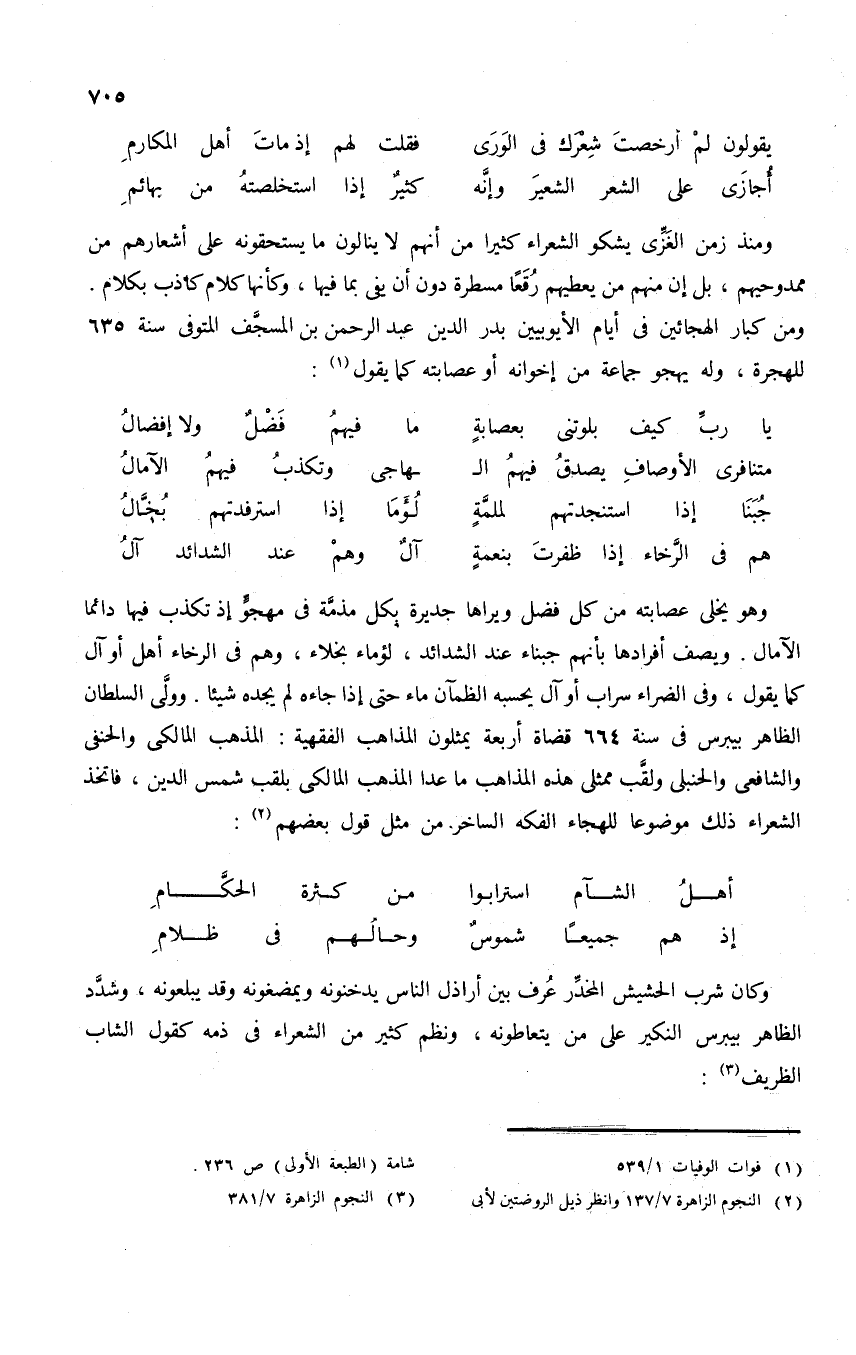 ٧٠٥
يقولون لمْ أرخصتَ شِعْرَك فى الوَرَى فقلت لهم إذ ماتَ أهل المكارمِ
أُجازَى على الشعر الشعيرَ وإنَّه كثيرٌ إذا استخلصتهُ من بهائمِ
ومنذ زمن الغَزِّى يشكو الشعراء كثيرا من أنهم لا ينالون ما يستحقونه على أشعارهم من
ممدوحيهم ، بل إن منهم من يعطيهم رُقَعًا مسطرة دون أن يفى بما فيها ، وكأنها كلام كاذب بكلام .
ومن كبار الهجائين فى أيام الأيوبيين بدر الدين عبد الرحمن بن المسجَّف المتوفى سنة ٦٣٥
للهجرة ، وله يهجو جماعة من إخوانه أو عصابته كما يقول(١) :
يا ربِّ كيف بلوتنى بعصابةٍ ما فيهمُ فَضْلٌ ولا إفضالُ
متنافرى الأوصافِ يصدقُ فيهمُ الـ ـهاجى وتكذبُ فيهمُ الآمالُ
جُبَنَا إذا استنجدتهم لملمَّةٍ لُؤَمَا إذا استرفدتهم بُخَّالُ
هم فى الرَّخاء إذا ظفرتَ بنعمةٍ آلٌ وهمْ عند الشدائد آلُ
وهو يخلى عصابته من كل فضل ويراها جديرة بكل مذمَّة فى مهجوٍّ إذ تكذب فيها دائما
الآمال . ويصف أفرادها بأنهم جبناء عند الشدائد ، لؤماء بخلاء ، وهم فى الرخاء أهل أو آل
كما يقول ، وفى الضراء سراب أو آل يحسبه الظمآن ماء حتى إذا جاءه لم يجده شيئا . وولَّى السلطان
الظاهر بيبرس فى سنة ٦٦٤ قضاة أربعة يمثلون المذاهب الفقهية : المذهب المالكى والحنفى
والشافعى والحنبلى ولقَّب ممثلى هذه المذاهب ما عدا المذهب المالكى بلقب شمس الدين ، فاتخذ
الشعراء ذلك موضوعا للهجاء الفكه الساخر. من مثل قول بعضهم(٢) :
أهــلُ الشــآم استرابـوا مـن كـثرة الحكَّـــــامِ
إذ هم جميعـًا شموسٌ وحـالُـهـم فى ظـــلامِ
وكان شرب الحشيش المخدِّر عُرف بين أراذل الناس يدخنونه ويمضغونه وقد يبلعونه ، وشدَّد
الظاهر بيبرس النكير على من يتعاطونه ، ونظم كثير من الشعراء فى ذمه كقول الشاب
الظريف(٣) :
(١) فوات الوفيات ٥٣٩/١
(٢) النجوم الزاهرة ١٣٧/٧ وانظر ذيل الروضتين لأبى
شامة (الطبعة الأولى) ص ٢٣٦ .
(٣) النجوم الزاهرة ٣٨١/٧